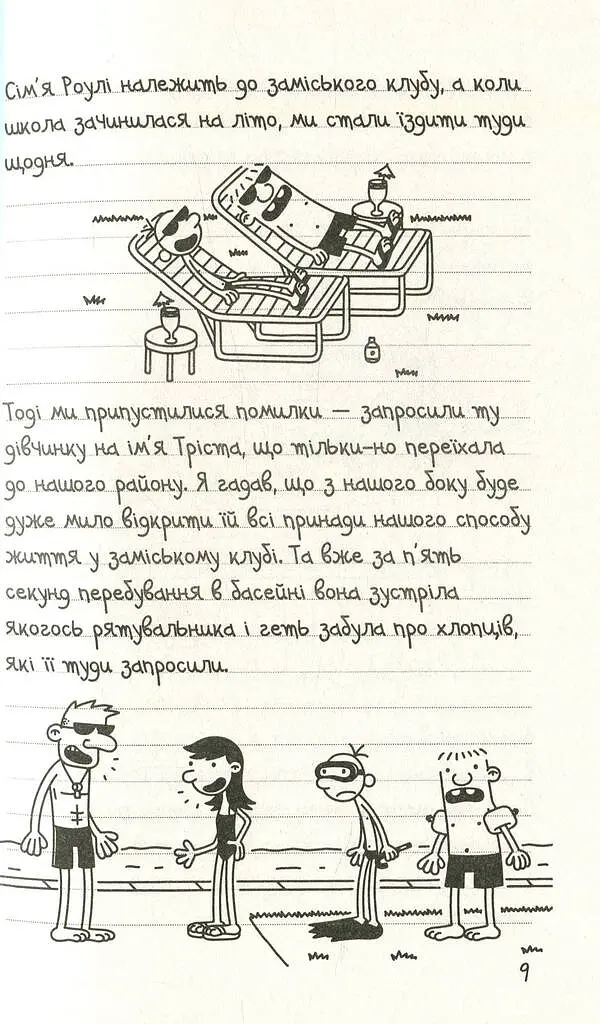 Сім'я Роулі належить до заміського клубу, а коли
школа зачинилася на літо, ми стали їздити туди
щодня.
Тоді ми припустилися помилки — запросили ту
дівчинку на ім'я Тріста, що тільки-но переїхала
до нашого району. Я гадав, що з нашого боку буде
дуже мило відкрити їй всі принади нашого способу
життя у заміському клубі. Та вже за п'ять
секунд перебування в басейні вона зустріла
якогось рятувальника і геть забула про хлопців,
які її туди запросили.
9